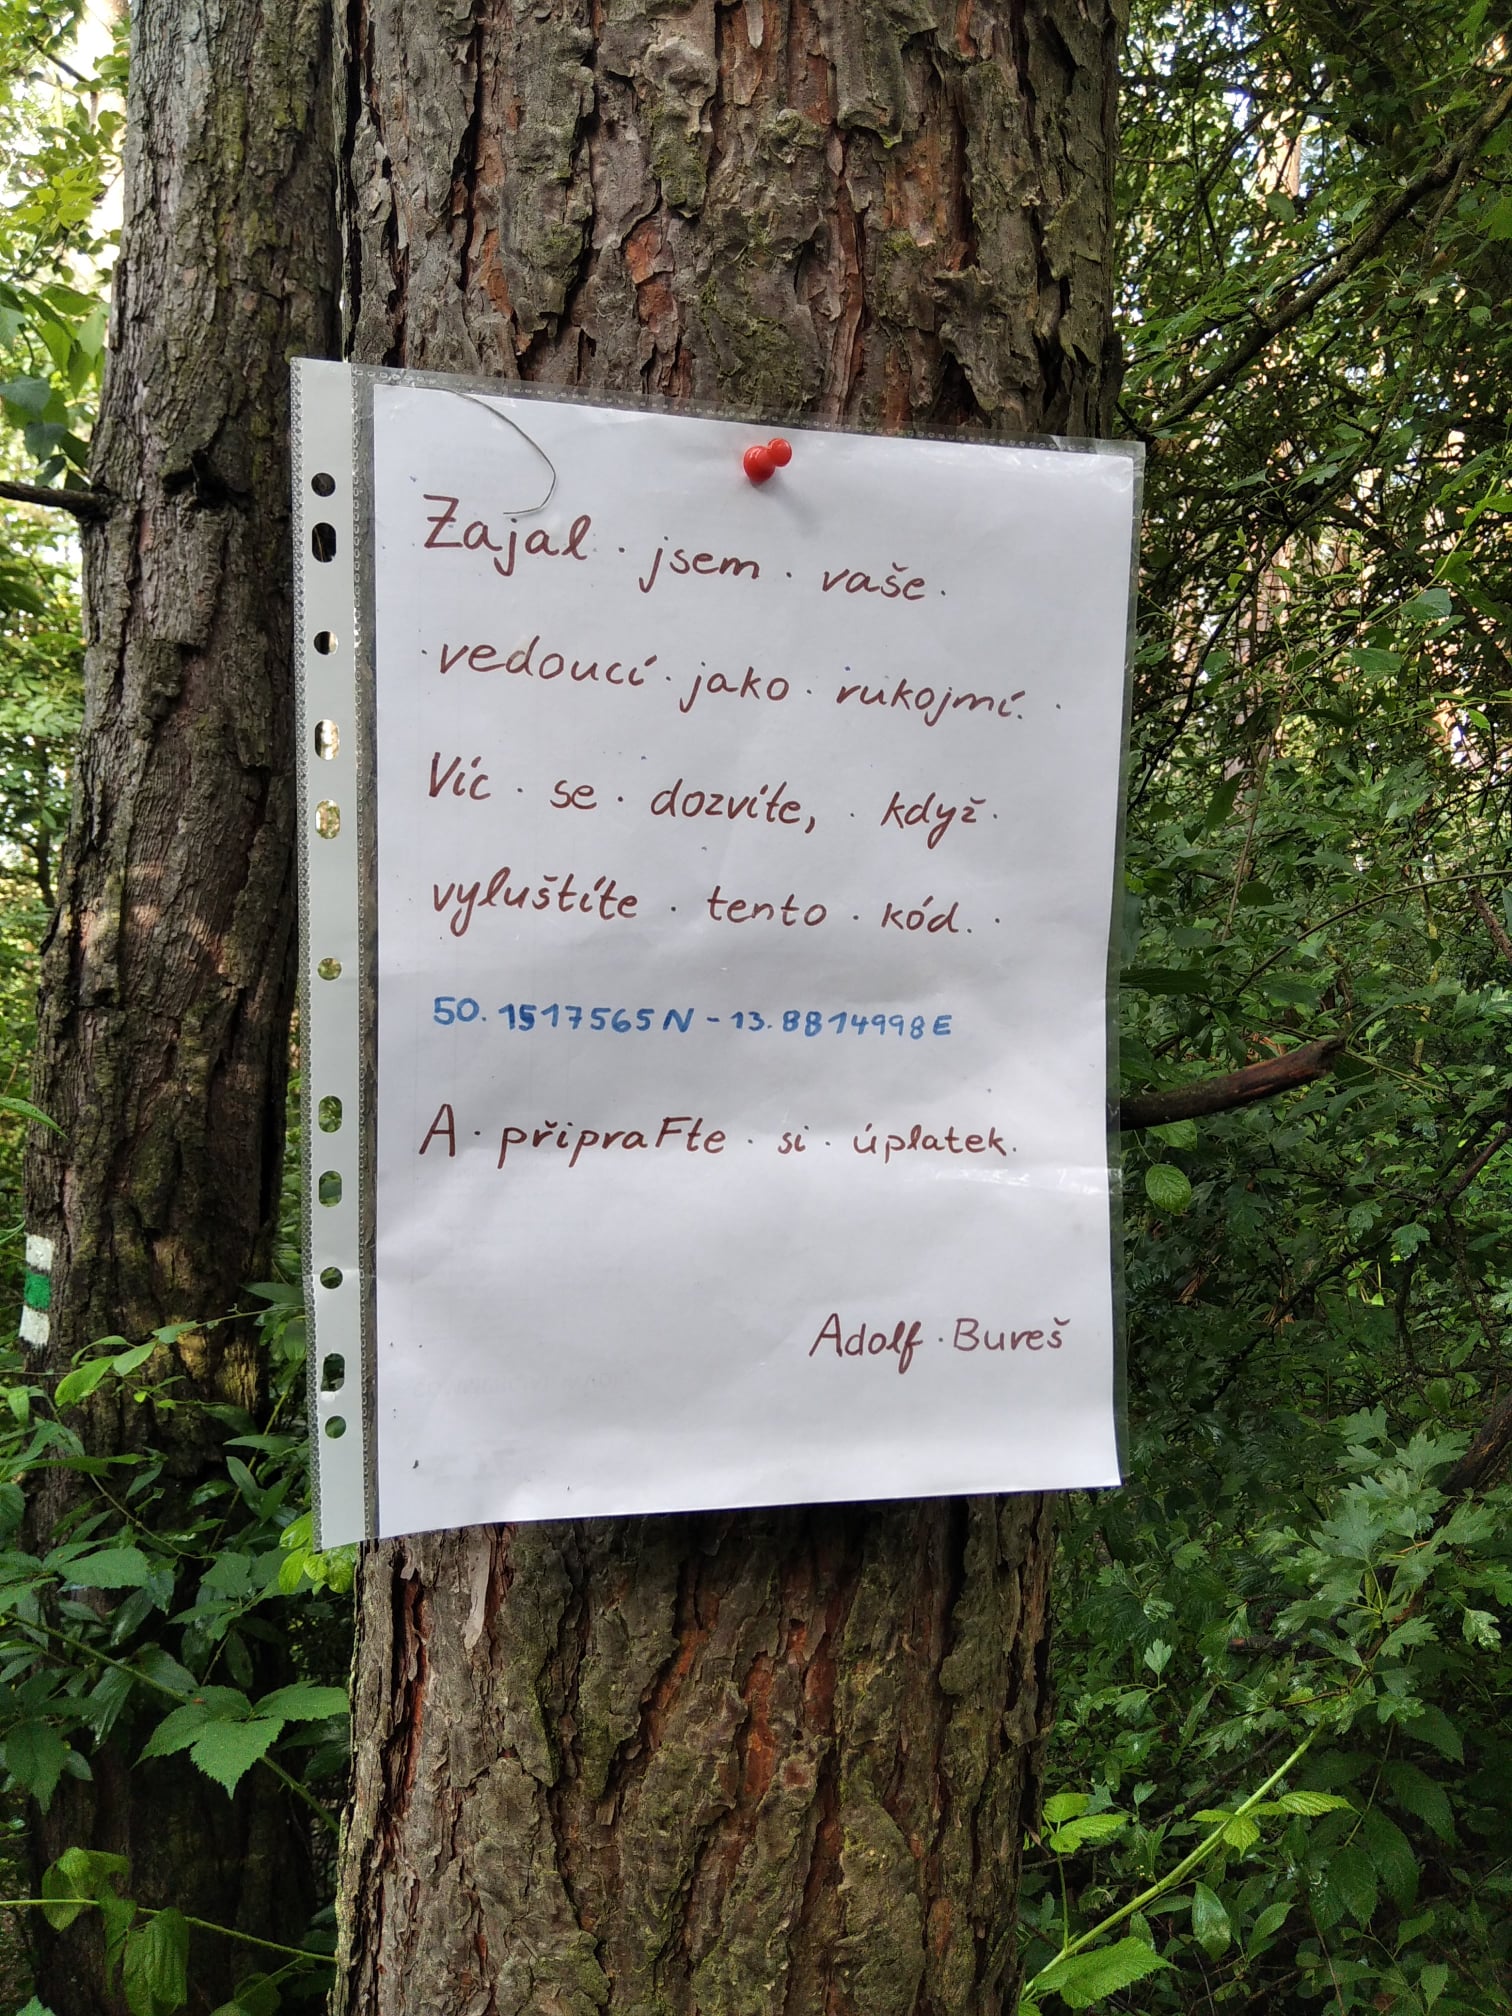 Zajal · jsem · vaše ·
· vedoucí · jako · rukojmí. ·
Víc · se · dozvíte, · když ·
vyluštíte · tento · kód. ·
50.1517565N - 13.8814998E
A · připraFte · si · úplatek.
Adolf · Bureš